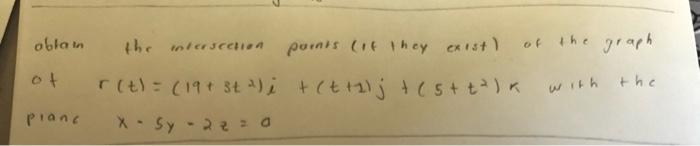 obtain the intersection points (if they exist) of the graph
of r(t) = (19 + 3t²)i + (t+1)j + (5 + t²)k with the
plane x - 5y - 2z = 0